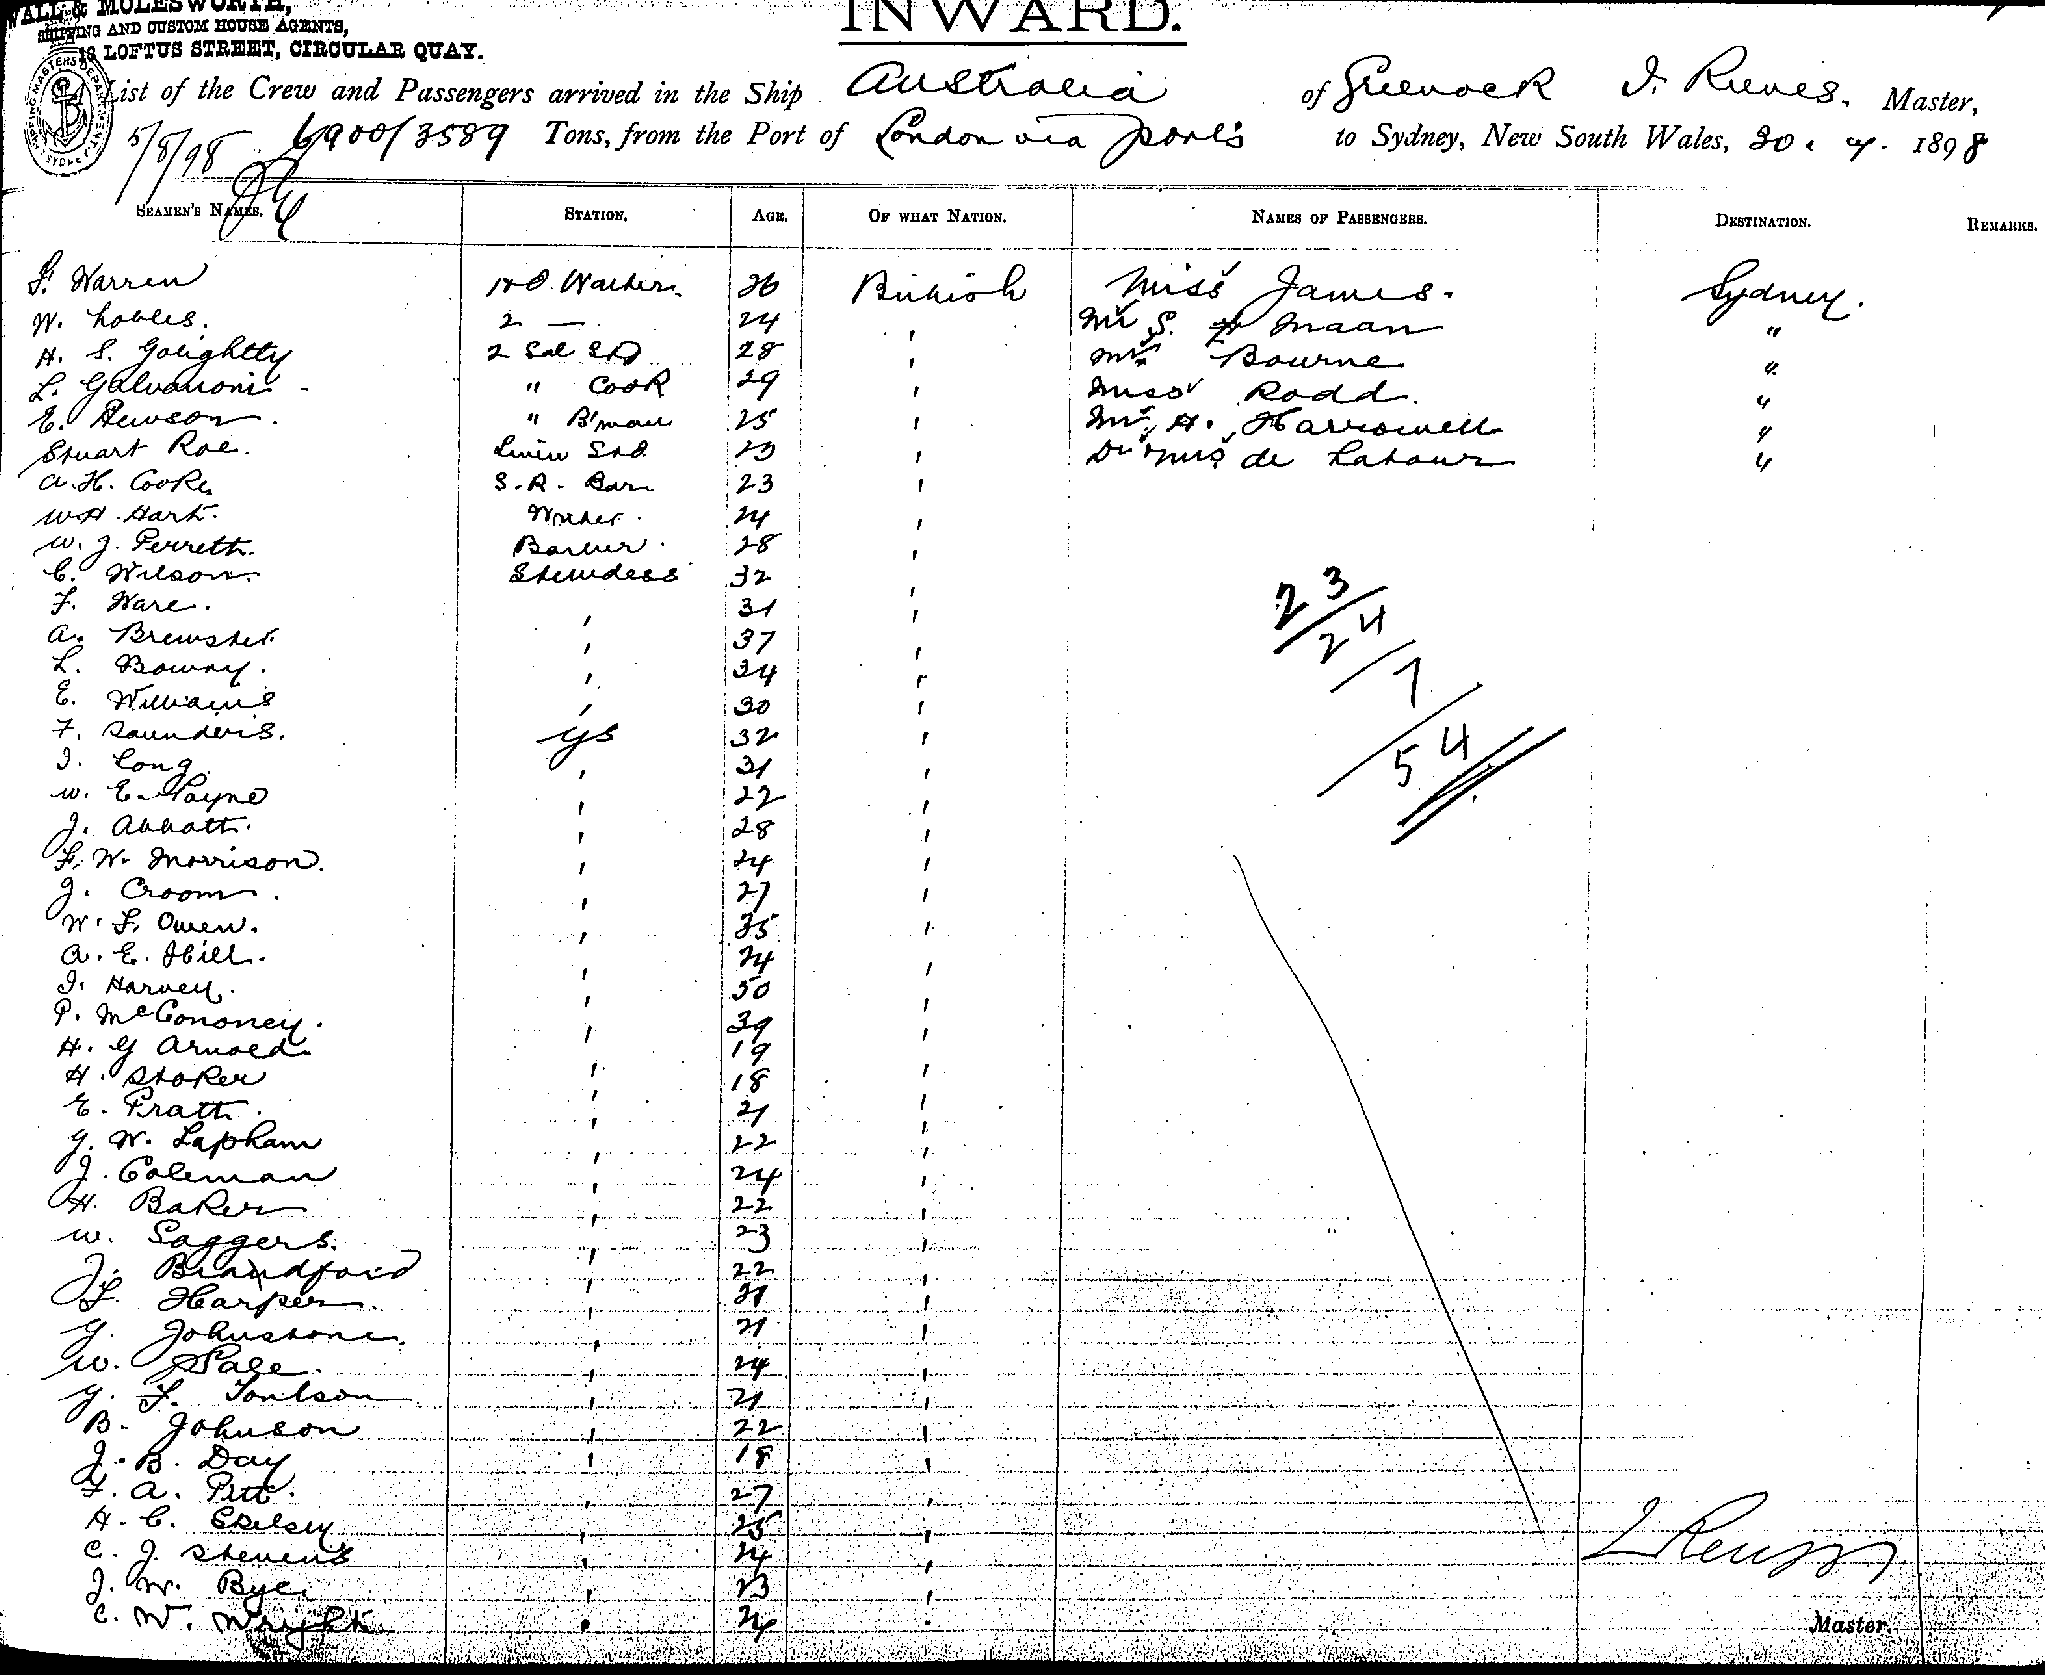 WALL & MOLESWORTH,
SHIPPING AND CUSTOM HOUSE AGENTS,
18 LOFTUS STREET, CIRCULAR QUAY.
INWARD.
List of the Crew and Passengers arrived in the Ship Australia of Greenock Master,
5/8/98 6900/3589 Tons, from the Port of London via ports to Sydney, New South Wales, 30. 7. 1898
SEAMEN'S NAMES. STATION. AGE. OF WHAT NATION. NAMES OF PASSENGERS. DESTINATION. REMARKS.
F. Warren 26 British Miss James. Sydney.
W. 2 — 24 ' Mr S. Maan "
H. S. Golightly 2 Sal 28 ' Mrs Bourne "
L. Galvanoni " Cook 29 ' Miss Rodd. "
E. Hewson. " B'man 25 ' Mr H. Harrowell "
Stuart Roe. Linen ' Dr & Mrs de Latour "
A. H. Cooke S.R. Bar 23 '
W H. Hart. 24 '
W. J. Perrett. Barber. 28 '
C. Wilson. Stewdess 32 '
F. Ware. ' 31 '
A. Brewster ' 37 '
L. Bowny. ' 34 '
E. Williams ' 30 '
F. Saunders. 32 '
J. Long ' 31 '
W. E. Payne ' 22 '
J. Abbott. ' 28 '
F. W. Morrison. ' 24 '
J. Croom. ' 27 '
W. F. Owen. ' 35 '
A. E. Hill. ' 24 '
J. Harvey. ' 50 '
P. McCononey. ' 39 '
H. G Arnold. ' 19 '
H. Stoker ' 18 '
E. Pratt. ' 21 '
G. W. Lapham ' 22 '
J. Coleman ' 24 '
H. Baker ' 22 '
W. Saggers. ' 23 '
J. Blandford ' 22 '
F. Harper. ' 21 '
G. Johnstone. ' 21 '
W. Sale. ' 24 '
G. F. Toulson ' 21 '
B. Johnson ' 22 '
J. B. Day ' 18 '
F. A. Pitt. ' 27 '
H. C. ' 25 '
C. J. Stevens ' 24 '
J. W. Bye. ' 23 '
C. W. Wright ' 24 '
23
24
7
54
Master.